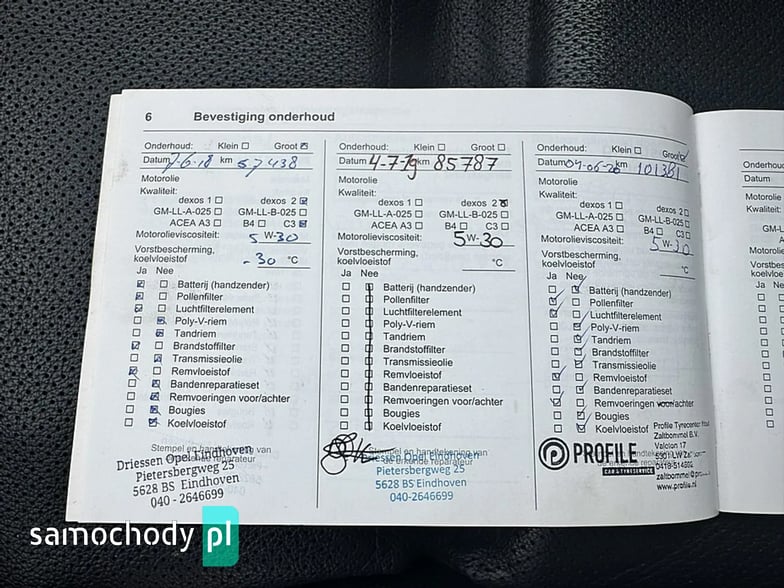 6 Bevestiging onderhoud
Onderhoud: Klein Groot
Datum 7-6-18 km 57438
Motorolie
Kwaliteit:
dexos 1 dexos 2
GM-LL-A-025 GM-LL-B-025
ACEA A3 B4 C3
Motorolieviscositeit: 5 W-30
Vorstbescherming,
koelvloeistof -30 °C
Ja Nee
Batterij (handzender)
Pollenfilter
Luchtfilterelement
Poly-V-riem
Tandriem
Brandstoffilter
Transmissieolie
Remvloeistof
Bandenreparatieset
Remvoeringen voor/achter
Bougies
Koelvloeistof
Stempel en handtekening van
de erkende reparateur
Driessen Opel Eindhoven
Pietersbergweg 25
5628 BS Eindhoven
040 - 2646699
Onderhoud: Klein Groot
Datum 4-7-19 km 85787
Motorolie
Kwaliteit:
dexos 1 dexos 2
GM-LL-A-025 GM-LL-B-025
ACEA A3 B4 C3
Motorolieviscositeit: 5W-30
Vorstbescherming,
koelvloeistof °C
Ja Nee
Batterij (handzender)
Pollenfilter
Luchtfilterelement
Poly-V-riem
Tandriem
Brandstoffilter
Transmissieolie
Remvloeistof
Bandenreparatieset
Remvoeringen voor/achter
Bougies
Koelvloeistof
Stempel en handtekening van
de erkende reparateur
Driessen Opel Eindhoven
Pietersbergweg 25
5628 BS Eindhoven
040-2646699
Onderhoud: Klein Groot
Datum 04-06-20 km 101381
Motorolie
Kwaliteit:
dexos 1 dexos 2
GM-LL-A-025 GM-LL-B-025
ACEA A3 B4 C3
Motorolieviscositeit: 5 W-30
Vorstbescherming,
koelvloeistof °C
Ja Nee
Batterij (handzender)
Pollenfilter
Luchtfilterelement
Poly-V-riem
Tandriem
Brandstoffilter
Transmissieolie
Remvloeistof
Bandenreparatieset
Remvoeringen voor/achter
Bougies
Koelvloeistof
PROFILE
CAR & TYRESERVICE
Profile Tyrecenter
Zaltbommel B.V.
Valeton 17
5301 LW
0418-514802
www.profile.nl
Onderhoud:
Datum
Motorolie
Kwaliteit:
Ja
samochody pl